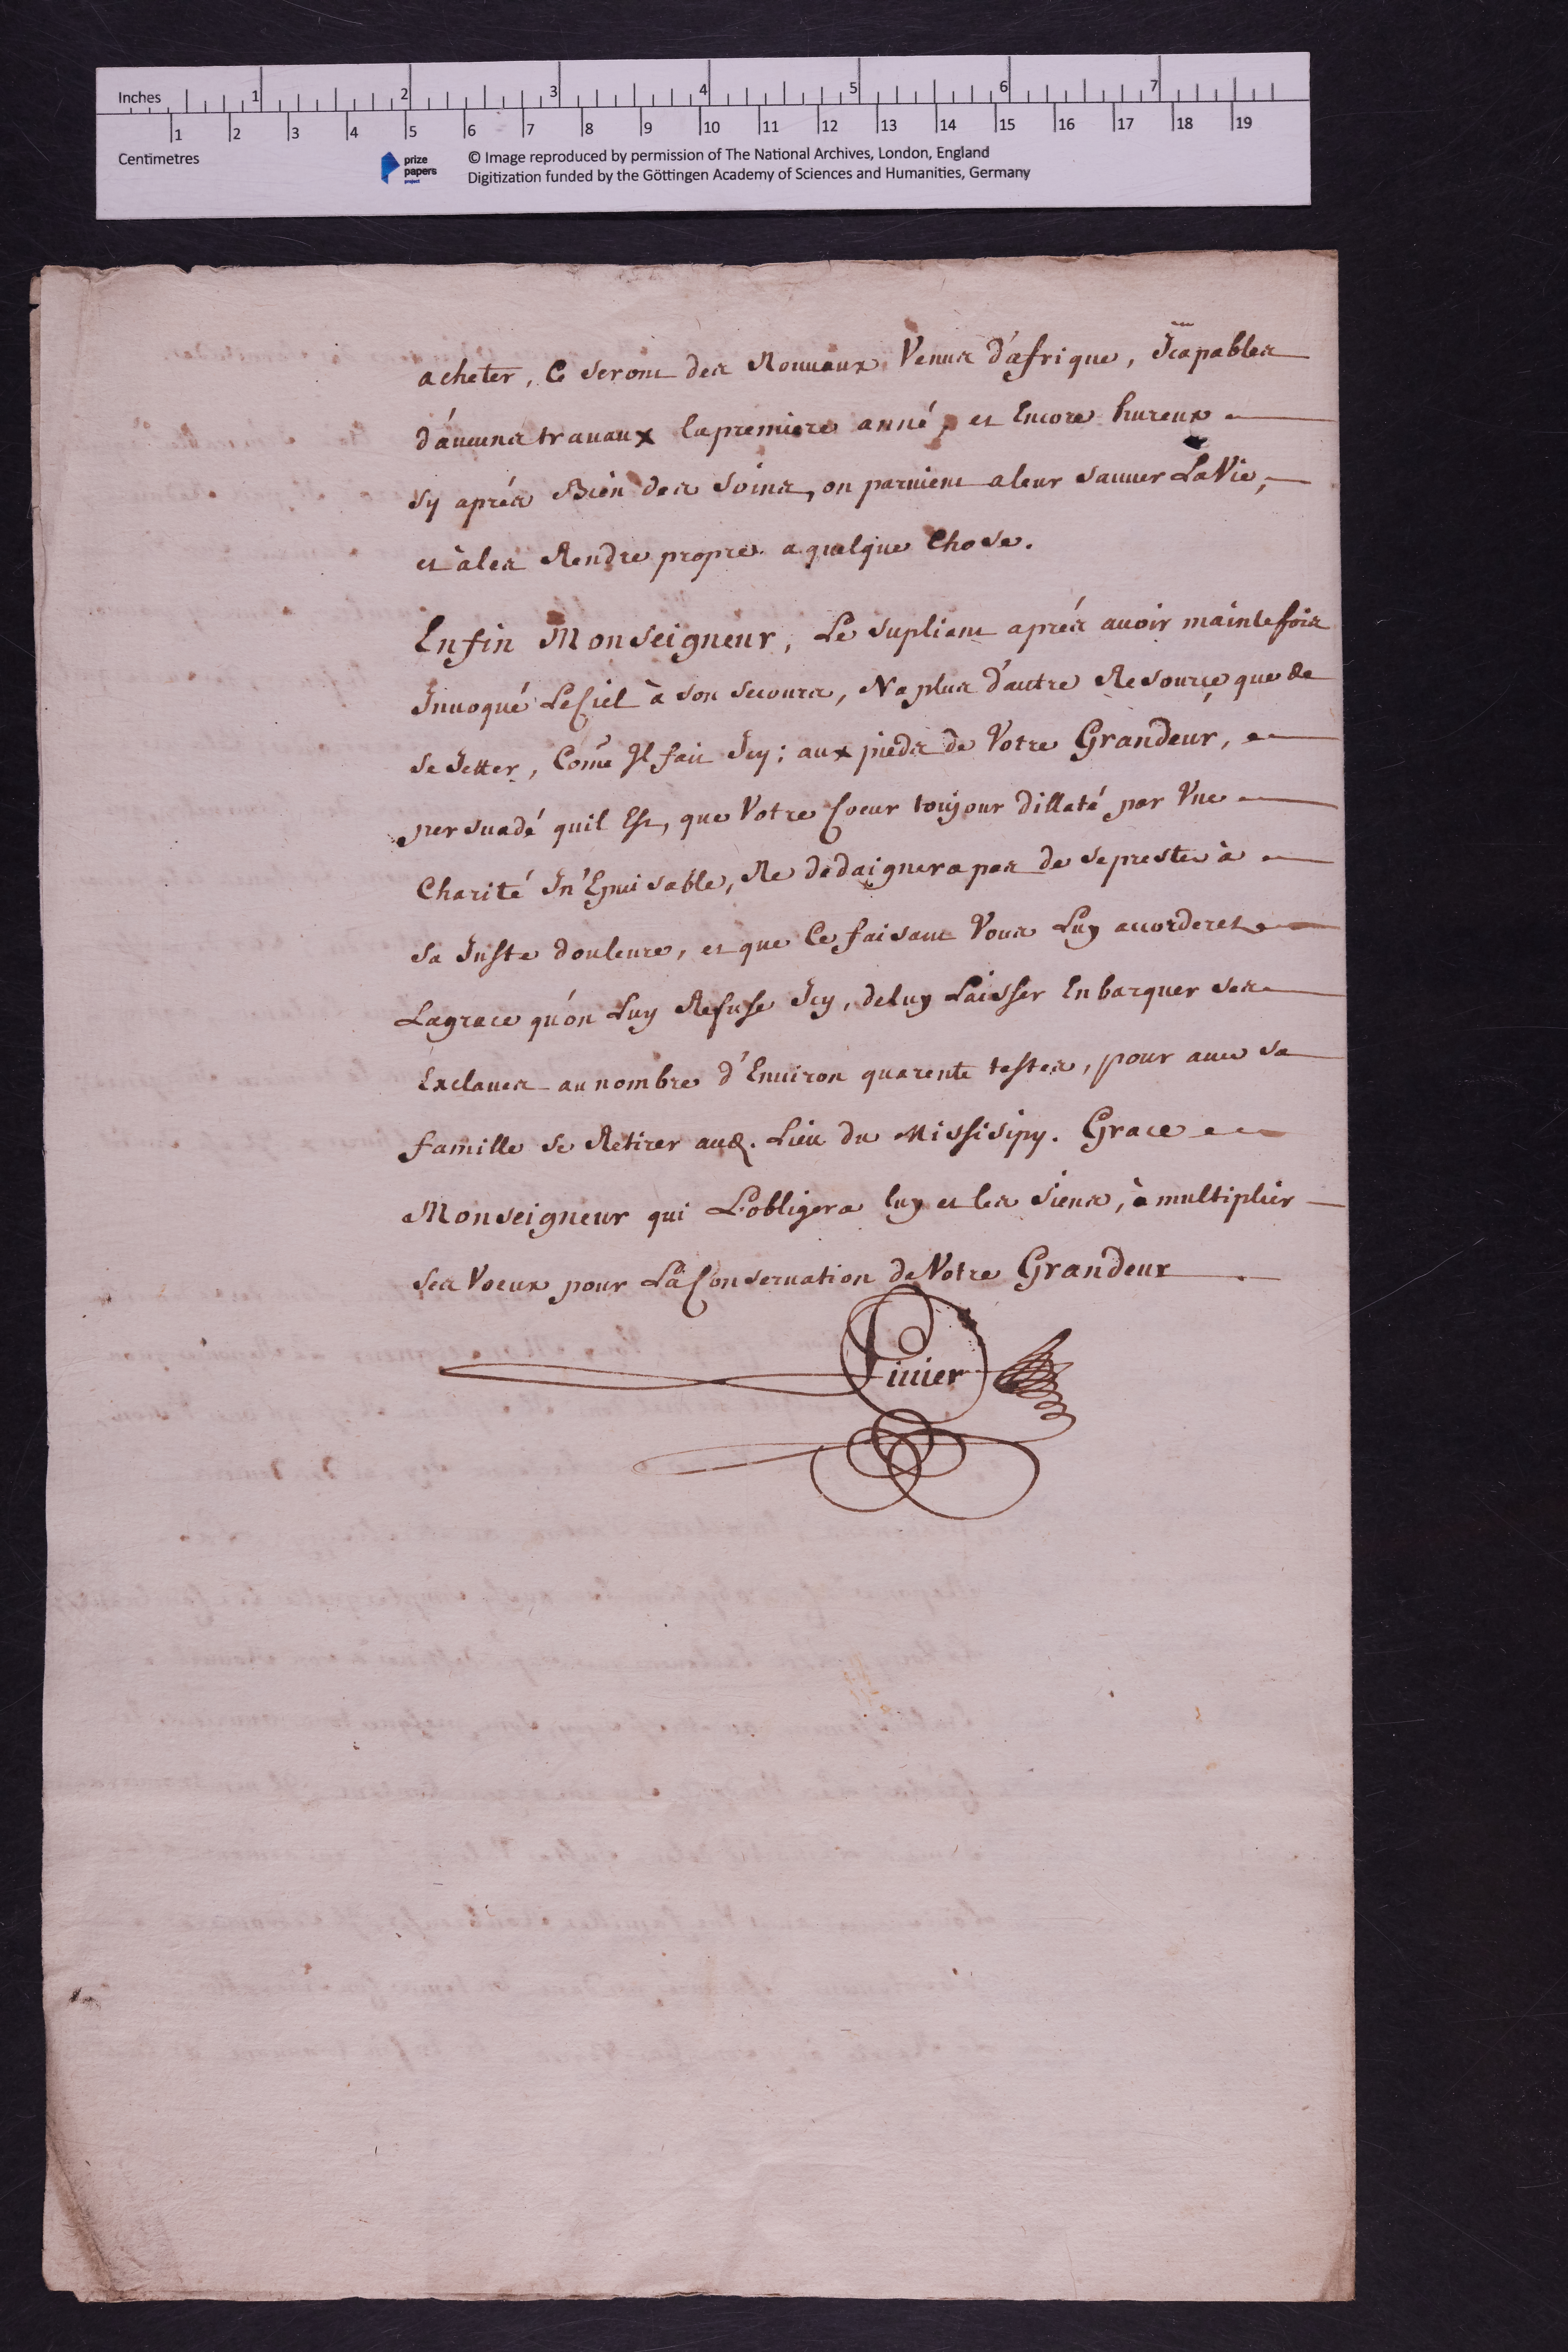 Inches 1 2 3 4 5 6 7
1 2 3 4 5 6 7 8 9 10 11 12 13 14 15 16 17 18 19
Centimetres
prize papers project
© Image reproduced by permission of The National Archives, London, England
Digitization funded by the Göttingen Academy of Sciences and Humanities, Germany
acheter, Ce seront des Nouueaux Venus d'afrique, Icapables
d'áucuns trauaux lapremiere anné, et Encore hureux
sy aprés Bien des soins, on paruient aleur sauuer LaVie,
et àles Rendre propre a quelque Chose.
Enfin Monseigneur, Le supliant aprés auoir maintefois
Inuoqué LeCiel à son secours, Na plus d'autre Resource que de
se Jetter, Come Il fait Icy; aux pieds de Votre Grandeur,
persuadé quil Est, que Votre Coeur toujour dillaté par Vne
Charité In'Epuisable, Ne dedaignera pas de sepreste à
sa Juste douleure, et que Ce faisant Vous Luy accorderez
Lagrace qu'on Luy Refuse Icy, deluy Laisser Enbarquer ses
Exclaues au nombre d'Enuiron quarente testes, pour auec sa
famille se Retirer aud. Lieu du Missisipy. Grace
Monseigneur qui L'obligera luy et les siens, à multiplier
ses Voeux pour La Conseruation deVotre Grandeur